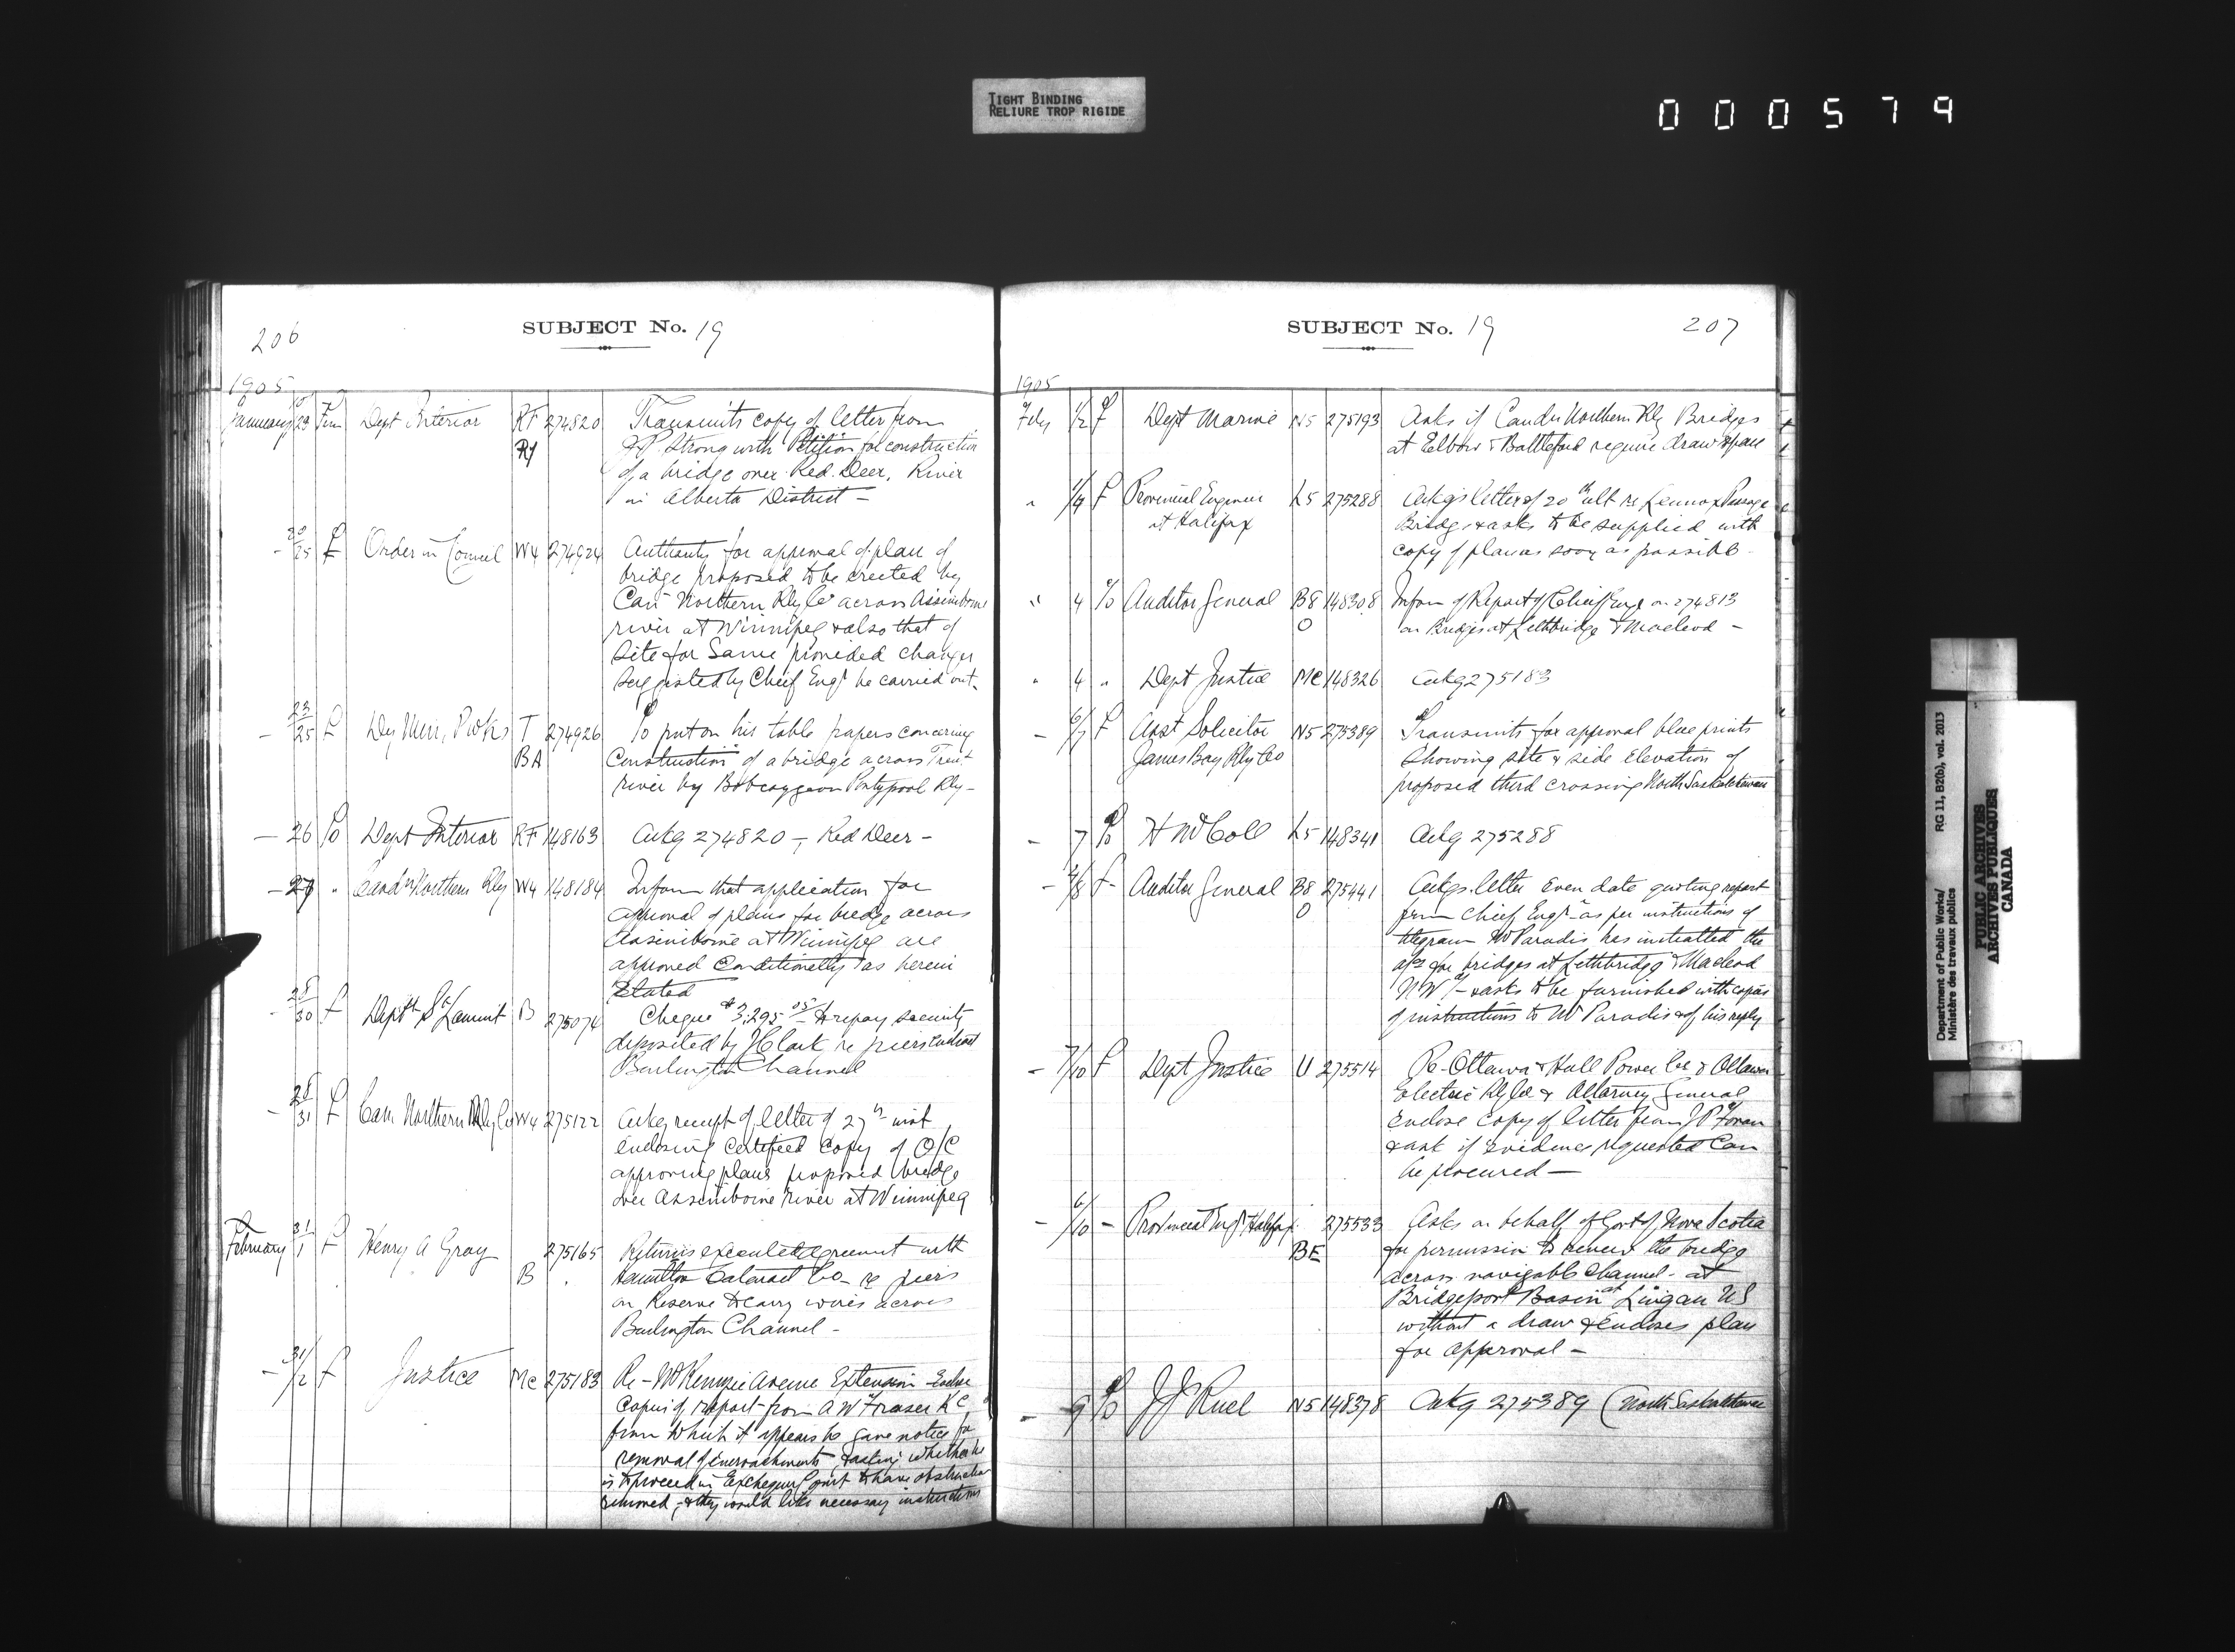 TIGHT BINDING
RELIURE TROP RIGIDE
000579
206
SUBJECT No. 19
1905
January 23 Dept Interior RF 274820 Transmits copy of letter from
Ry Strong with Petition for construction
of a bridge over Red Deer, River
in Alberta District —
25 Order in Council W4 274924 Authority for approval of plan of
bridge proposed to be erected by
Can Northern Rly Co across Assiniboine
river at Winnipeg & also that of
Site for Same provided changes
suggested by Chief Engr be carried out.
— 23/25 Dy Min, P. Wks T 274926 To put on his table papers concerning
BA Construction of a bridge across Trent
river by Bobcaygeon Pontypool Rly —
— 26 Dept Interior RF 148163 Ackg 274820 — Red Deer —
— 27 " Cand Northern Rly W4 148184 Inform that application for
approval of plans for bridge across
Assiniboine at Winnipeg are
approved Conditionally as herein
Stated
30 B 275074 Cheque $3,295 to repay security
deposited by J Clark re piers
Burlington Channel
— 28/31 Can Northern Rly Co W4 275122 Ackg receipt of letter of 27th inst
enclosing Certified Copy of O/C
approving plans proposed bridge
over Assiniboine river at Winnipeg
February 31/1 Henry A Gray 275165 Returns agreement with
B Hamilton Cataract Co — re piers
on Reserve to carry wires across
Burlington Channel —
— 31/2 Justice Mc 275183 Re — McKenzie Avenue Extension — Enclose
Copies of report from A W Fraser K C
from which it appears he gave notice for
removal of encroachments, & asking whether he
is to proceed in Exchequer Court to have obstruction
removed, — & they would like necessary instructions
SUBJECT No. 19
207
1905
Feby 1/2 Dept Marine N5 275193 Asks if Candn Northern Rly Bridges
at Elbow & Battleford require draw span
" 1/4 Provincial Engineer L5 275288 Ackgs letter of 20th ult re Lennox Passage
at Halifax Bridge & asks to be supplied with
copy of plan as soon as possible —
" 4 Auditor General B8 148308 Inform of Report of Chief Engr on 274813
O on Bridges at Lethbridge & Macleod —
" 4 " Dept Justice Mc 148326 Ackg 275183
— 6/7 Asst Solicitor N5 275389 Transmits for approval blue prints
James Bay Rly Co Showing site & side elevation of
proposed third crossing North Saskatchewan
— 7 H McColl L5 148341 Ackg 275288
— 7/8 Auditor General B8 275441 Ackgs letter even date quoting report
O from Chief Engr — as per instructions of
telegram Mr Paradis has the
for bridges at Lethbridge & Macleod
N W T — & asks to be furnished with copies
of instructions to Mr Paradis & of his reply
— 7/10 Dept Justice U 275514 Re — Ottawa & Hull Power Co & Ottawa
Electric Rly Co & Attorney General
Enclose copy of letter from J P Foran
& ask if evidence requested Can
be procured —
— 6/10 — Provincial Engr Halifax 275533 Asks on behalf of Govt of Nova Scotia
BE for permission to renew the bridge
across navigable Channel — at
Bridgeport Basin at Lingan NS
without a draw & encloses plan
for approval —
— 9 J J Ruel N5 148378 Ackg 275389 (North Saskatchewan
Department of Public Works/
Ministère des travaux publics
RG 11, B2(b), vol. 2013
PUBLIC ARCHIVES
ARCHIVES PUBLIQUES
CANADA